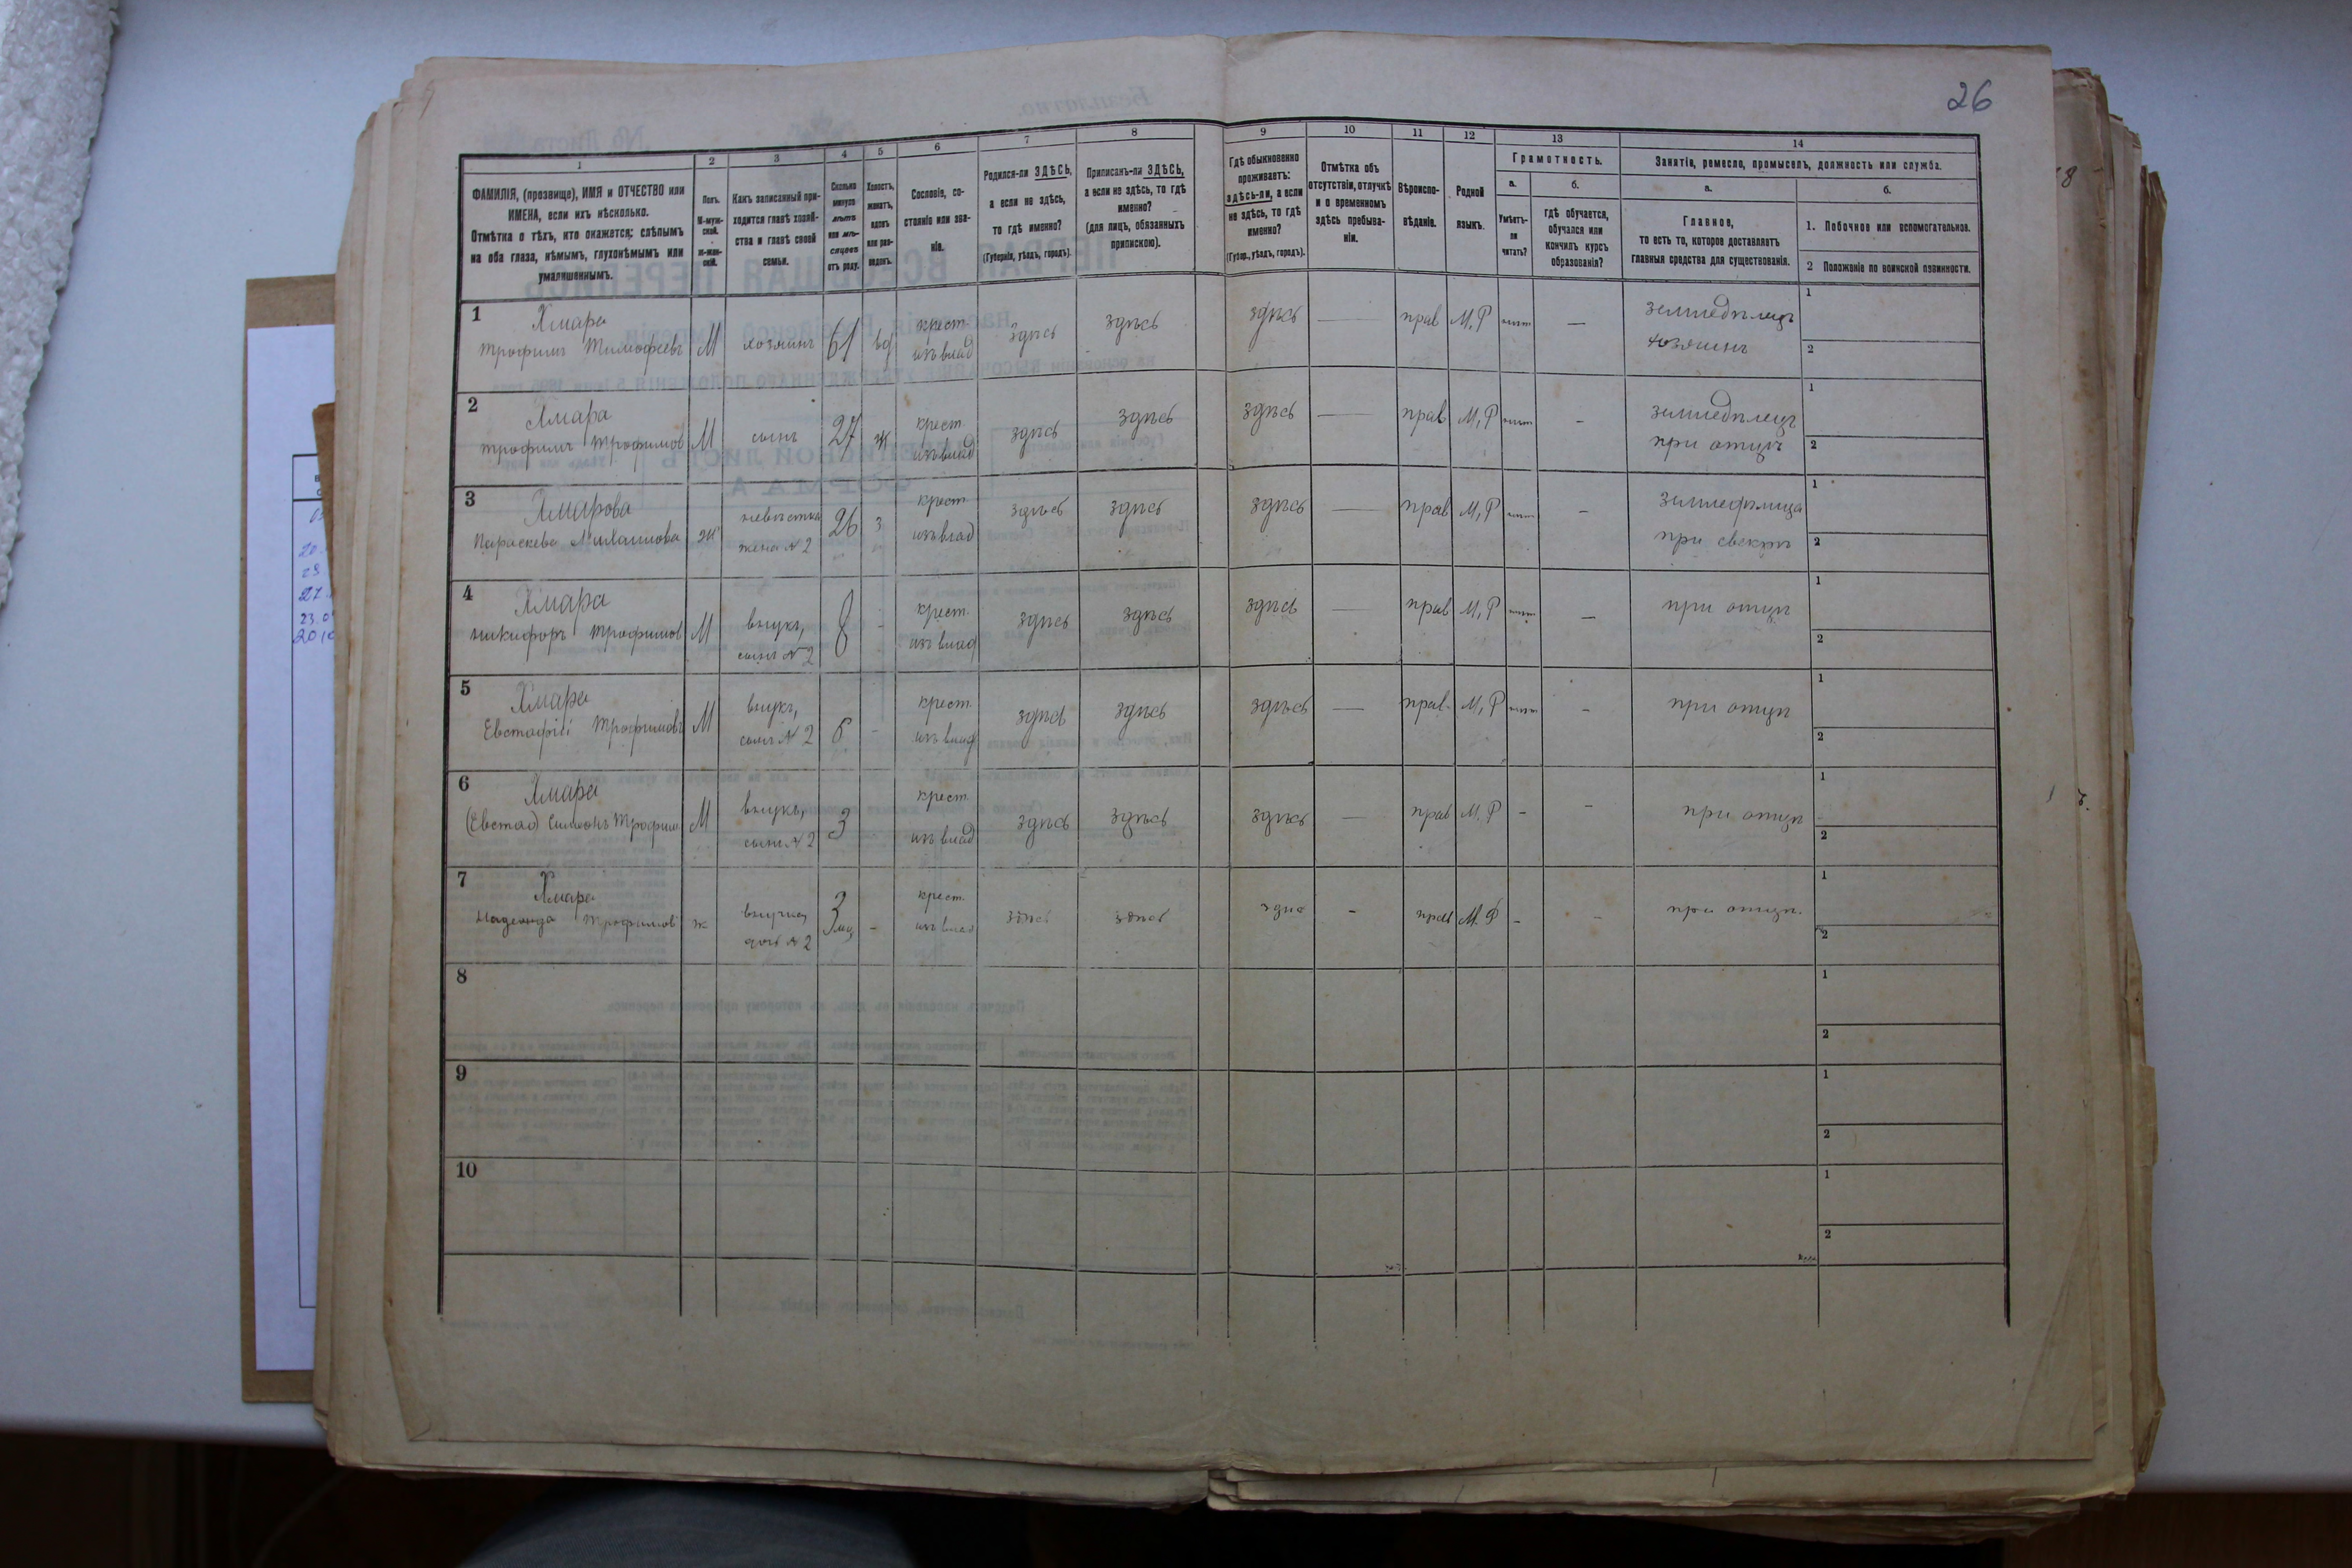 26
1 2 3 4 5 6 7 8 9 10 11 12 13 14
ФАМИЛІЯ, (прозвище), ИМЯ и ОТЧЕСТВО или ИМЕНА, если ихъ нѣсколько.
Отмѣтка о тѣхъ, кто окажется: слѣпымъ на оба глаза, нѣмымъ, глухонѣмымъ или умалишеннымъ.
Полъ.
М-мужской.
Ж-женскій.
Какъ записанный приходится главѣ хозяйства и главѣ своей семьи.
Сколько минуло лѣтъ или мѣсяцевъ отъ роду.
Холостъ, женатъ, вдовъ или разведенъ.
Сословіе, состояніе или званіе.
Родился-ли ЗДѢСЬ, а если не здѣсь, то гдѣ именно?
(Губернія, уѣздъ, городъ).
Приписанъ-ли ЗДѢСЬ, а если не здѣсь, то гдѣ именно?
(для лицъ, обязанныхъ припискою).
Гдѣ обыкновенно проживаетъ: здѣсь-ли, а если не здѣсь, то гдѣ именно?
(Губер., уѣздъ, городъ).
Отмѣтка объ отсутствіи, отлучкѣ и о временномъ здѣсь пребываніи.
Вѣроисповѣданіе.
Родной языкъ.
Грамотность.
а.
Умѣетъ-ли читать?
б.
гдѣ обучается, обучался или кончилъ курсъ образованія?
Занятіе, ремесло, промыселъ, должность или служба.
а.
Главное,
то есть то, которое доставляетъ главныя средства для существованія.
б.
1. Побочное или вспомогательное.
2 Положеніе по воинской повинности.
1 Хмара
Трофимъ Тимофеевъ М хозяинъ 61 вд крест. изъ влад здѣсь здѣсь здѣсь — прав М,Р — земледѣлецъ хозяинъ 1 2
2 Хмара
Трофимъ Трофимов М сынъ 27 ж крест. изъ влад здѣсь здѣсь здѣсь — прав М,Р - земледѣлецъ при отцѣ 1 2
3 Хмарова
Параскева Михайлова ж невѣстка жена N 2 26 з крест. изъ влад здѣсь здѣсь здѣсь — прав М,Р - при свекрѣ 1 2
4 Хмара
Никифоръ Трофимов М внукъ, сынъ N 2 8 - крест. изъ влад здѣсь здѣсь здѣсь — прав М,Р - при отцѣ 1 2
5 Хмара
Евстафій Трофимовъ М внукъ, сынъ N 2 6 - крест. изъ влад здѣсь здѣсь здѣсь — прав. М,Р - при отцѣ 1 2
6 Хмара
(Евстаф) Симонъ Трофим. М внукъ, сынъ N 2 3 крест. изъ влад здѣсь здѣсь здѣсь — прав М.Р - - при отцѣ 1 2
7 Хмара
Надежда Трофимов ж внучка, дочь N 2 3 мц - крест. изъ влад здѣсь здѣсь здѣс - прав М.Р - - при отцѣ. 1 2
8 1 2
9 1 2
10 1 2